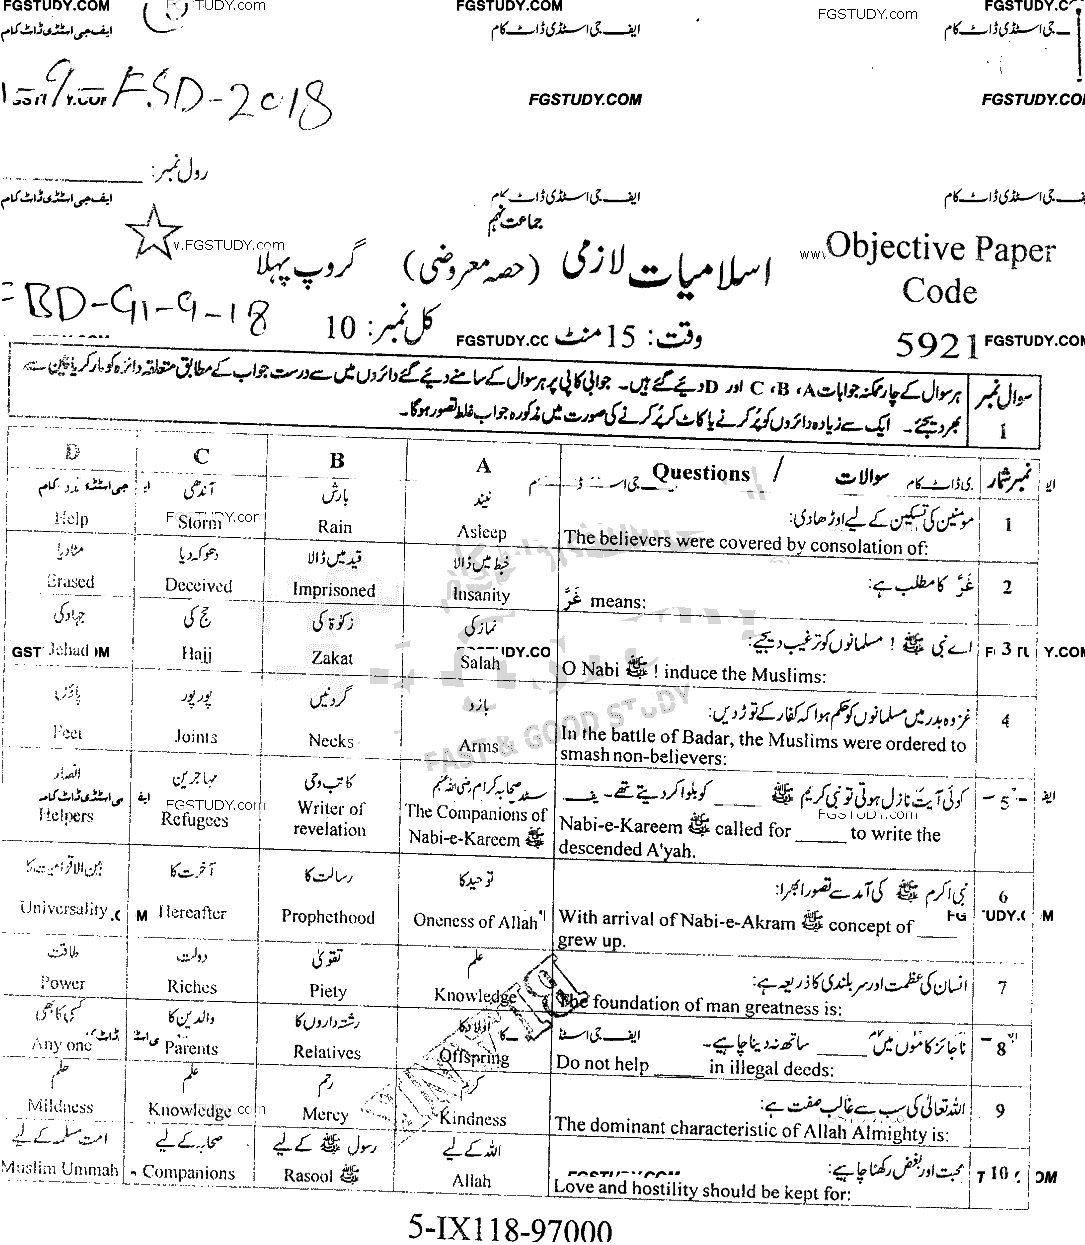 FGSTUDY.COM
FGSTUDY.COM
FGSTUDY.com
ایف جی اسٹڈی ڈاٹ کام
ایف جی اسٹڈی ڈاٹ کام
جی اسٹڈی ڈاٹ کام
9-FSD-2018
FGSTUDY.COM
رول نمبر: ________
ایف جی اسٹڈی ڈاٹ کام
ایف جی اسٹڈی ڈاٹ کام
جی اسٹڈی ڈاٹ کام
جماعت نہم
اسلامیات لازمی (حصہ معروضی) گروپ پہلا
Objective Paper
Code
5921
FBD-G1-9-18
وقت: 15 منٹ کل نمبر: 10
سوال نمبر 1
ہر سوال کے چار ممکنہ جوابات A، B، C اور D دیئے گئے ہیں۔ جوابی کاپی پر ہر سوال کے سامنے دیئے گئے دائروں میں سے درست جواب کے مطابق متعلقہ دائرہ کو مارکر یا پین سے
بھر دیجئے۔ ایک سے زیادہ دائروں کو پُر کرنے یا کاٹ کر پُر کرنے کی صورت میں مذکورہ جواب غلط تصور ہوگا۔
نمبر شمار سوالات / Questions A B C D
1 مومنین کی تسکین کے لیے اوڑھا دی: نیند بارش آندھی مدد
The believers were covered by consolation of: Asleep Rain Storm Help
2 غَرَّ کا مطلب ہے: خبط میں ڈالا قید میں ڈالا دھوکہ دیا مٹا دیا
غَرَّ means: Insanity Imprisoned Deceived Erased
3 اے نبی ﷺ ! مسلمانوں کو ترغیب دیجیے: نماز کی زکوٰۃ کی حج کی جہاد کی
O Nabi ﷺ ! induce the Muslims: Salah Zakat Hajj Jehad
4 غزوہ بدر میں مسلمانوں کو حکم ہوا کہ کفار کے توڑ دیں: بازو گردنیں پور پور پاؤں
In the battle of Badar, the Muslims were ordered to
smash non-believers: Arms Necks Joints Feet
5 کوئی آیت نازل ہوتی تو نبی کریم ﷺ ____ کو بلوا کر دیتے تھے۔ صحابہ کرام رضی اللہ عنہم کاتب وحی مہاجرین انصار
Nabi-e-Kareem ﷺ called for _____ to write the
descended A'yah. The Companions of Nabi-e-Kareem ﷺ Writer of revelation Refugees Helpers
6 نبی اکرم ﷺ کی آمد سے تصور ابھرا: توحید کا رسالت کا آخرت کا بین الاقوامیت کا
With arrival of Nabi-e-Akram ﷺ concept of ____
grew up. Oneness of Allah Prophethood Hereafter Universality
7 انسان کی عظمت اور سربلندی کا ذریعہ ہے: علم تقویٰ دولت طاقت
The foundation of man greatness is: Knowledge Piety Riches Power
8 ناجائز کاموں میں ____ ساتھ نہ دینا چاہیے۔ اولاد کا رشتہ داروں کا والدین کا کسی کا بھی
Do not help _____ in illegal deeds: Offspring Relatives Parents Any one
9 اللہ تعالیٰ کی سب سے غالب صفت ہے: کریم رحم علم حلم
The dominant characteristic of Allah Almighty is: Kindness Mercy Knowledge Mildness
10 محبت اور بغض رکھنا چاہیے: اللہ کے لیے رسول ﷺ کے لیے صحابہ کے لیے امت مسلمہ کے لیے
Love and hostility should be kept for: Allah Rasool ﷺ Companions Muslim Ummah
FAST & GOOD STUDY
5-IX118-97000